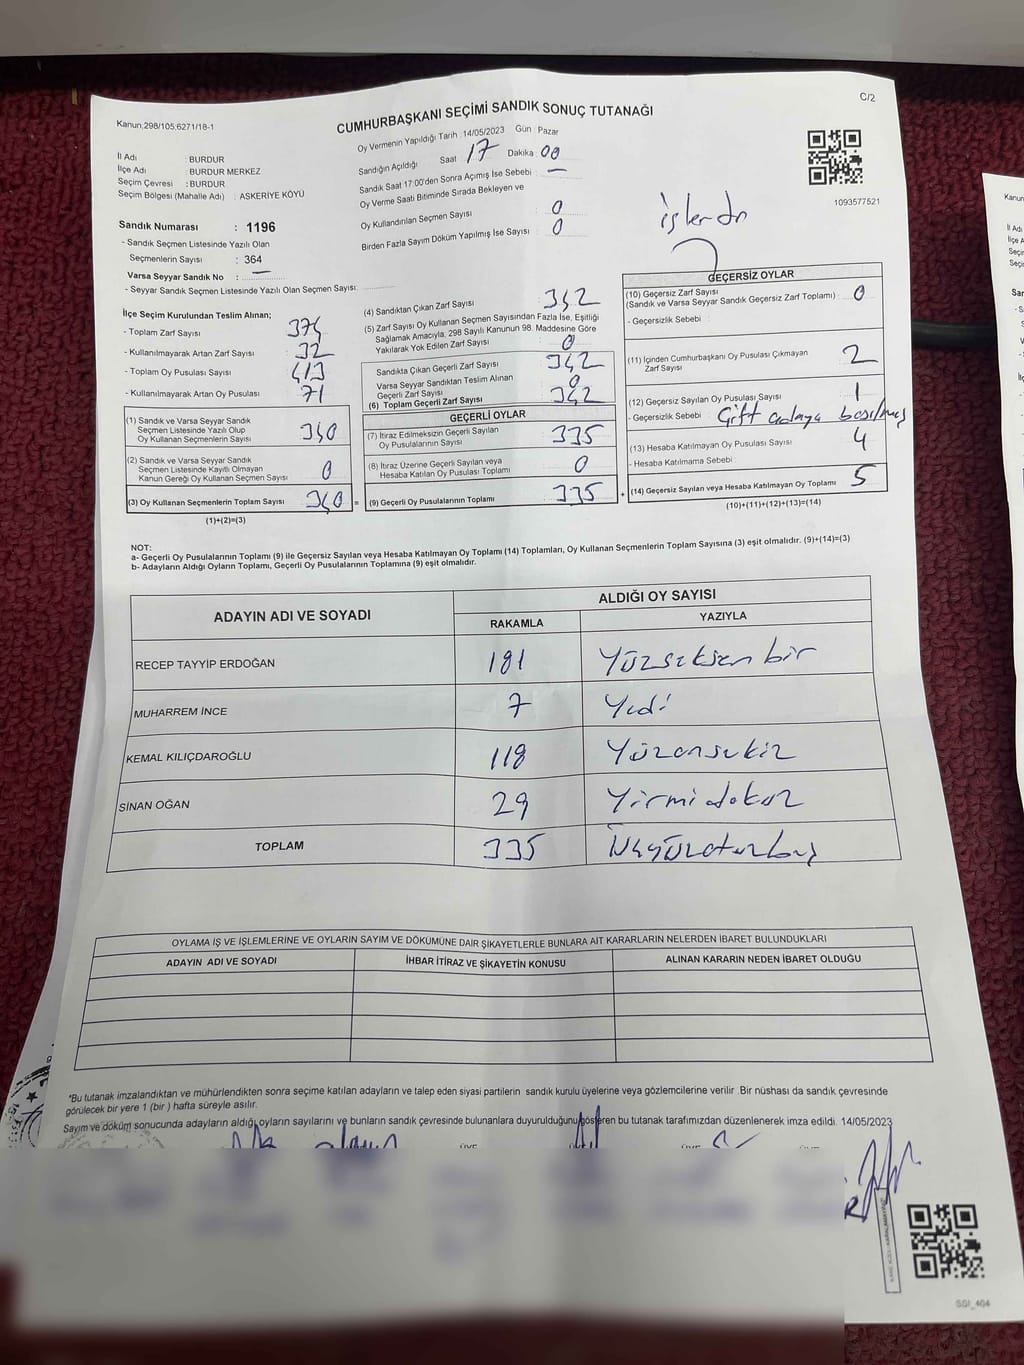 C/2
Kanun,298/105,6271/18-1
CUMHURBAŞKANI SEÇİMİ SANDIK SONUÇ TUTANAĞI
Oy Vermenin Yapıldığı Tarih :14/05/2023 Gün : Pazar
Sandığın Açıldığı Saat 17 Dakika : 00
Sandık Saat 17:00'den Sonra Açımış İse Sebebi : —
Oy Verme Saati Bitiminde Sırada Bekleyen ve
Oy Kullandırılan Seçmen Sayısı : 0
Birden Fazla Sayım Döküm Yapılmış İse Sayısı : 0
İl Adı : BURDUR
İlçe Adı : BURDUR MERKEZ
Seçim Çevresi : BURDUR
Seçim Bölgesi (Mahalle Adı) : ASKERİYE KÖYÜ
1093577521
işlendi
Sandık Numarası : 1196
- Sandık Seçmen Listesinde Yazılı Olan
Seçmenlerin Sayısı : 364
Varsa Seyyar Sandık No : —
- Seyyar Sandık Seçmen Listesinde Yazılı Olan Seçmen Sayısı:
İlçe Seçim Kurulundan Teslim Alınan;
- Toplam Zarf Sayısı 374
- Kullanılmayarak Artan Zarf Sayısı 32
- Toplam Oy Pusulası Sayısı 413
- Kullanılmayarak Artan Oy Pusulası 71
(1) Sandık ve Varsa Seyyar Sandık
Seçmen Listesinde Yazılı Olup
Oy Kullanan Seçmenlerin Sayısı 340
(2) Sandık ve Varsa Seyyar Sandık
Seçmen Listesinde Kayıtlı Olmayan
Kanun Gereği Oy Kullanan Seçmen Sayısı 0
(3) Oy Kullanan Seçmenlerin Toplam Sayısı 340 =
(1)+(2)=(3)
(4) Sandıktan Çıkan Zarf Sayısı 342
(5) Zarf Sayısı Oy Kullanan Seçmen Sayısından Fazla İse, Eşitliği
Sağlamak Amacıyla, 298 Sayılı Kanunun 98. Maddesine Göre
Yakılarak Yok Edilen Zarf Sayısı 0
Sandıkta Çıkan Geçerli Zarf Sayısı 342
Varsa Seyyar Sandıktan Teslim Alınan
Geçerli Zarf Sayısı 0
(6) Toplam Geçerli Zarf Sayısı 342
GEÇERLİ OYLAR
(7) İtiraz Edilmeksizin Geçerli Sayılan
Oy Pusulalarının Sayısı 335
(8) İtiraz Üzerine Geçerli Sayılan veya
Hesaba Katılan Oy Pusulası Toplamı 0
(9) Geçerli Oy Pusulalarının Toplamı 335 +
GEÇERSİZ OYLAR
(10) Geçersiz Zarf Sayısı
(Sandık ve Varsa Seyyar Sandık Geçersiz Zarf Toplamı) : 0
- Geçersizlik Sebebi :
(11) İçinden Cumhurbaşkanı Oy Pusulası Çıkmayan
Zarf Sayısı 2
(12) Geçersiz Sayılan Oy Pusulası Sayısı 1
- Geçersizlik Sebebi : Çift adaya basılmış
(13) Hesaba Katılmayan Oy Pusulası Sayısı 4
- Hesaba Katılmama Sebebi :
(14) Geçersiz Sayılan veya Hesaba Katılmayan Oy Toplamı 5
(10)+(11)+(12)+(13)=(14)
NOT:
a- Geçerli Oy Pusulalarının Toplamı (9) ile Geçersiz Sayılan veya Hesaba Katılmayan Oy Toplamı (14) Toplamları, Oy Kullanan Seçmenlerin Toplam Sayısına (3) eşit olmalıdır. (9)+(14)=(3)
b- Adayların Aldığı Oyların Toplamı, Geçerli Oy Pusulalarının Toplamına (9) eşit olmalıdır.
ADAYIN ADI VE SOYADI ALDIĞI OY SAYISI
RAKAMLA YAZIYLA
RECEP TAYYİP ERDOĞAN 181 Yüzseksen bir
MUHARREM İNCE 7 Yedi
KEMAL KILIÇDAROĞLU 118 Yüzonsekiz
SİNAN OĞAN 29 Yirmidokuz
TOPLAM 335 Üçyüzotuzbeş
OYLAMA İŞ VE İŞLEMLERİNE VE OYLARIN SAYIM VE DÖKÜMÜNE DAİR ŞİKAYETLERLE BUNLARA AİT KARARLARIN NELERDEN İBARET BULUNDUKLARI
ADAYIN ADI VE SOYADI İHBAR İTİRAZ VE ŞİKAYETİN KONUSU ALINAN KARARIN NEDEN İBARET OLDUĞU
*Bu tutanak imzalandıktan ve mühürlendikten sonra seçime katılan adayların ve talep eden siyasi partilerin sandık kurulu üyelerine veya gözlemcilerine verilir .Bir nüshası da sandık çevresinde
görülecek bir yere 1 (bir ) hafta süreyle asılır.
Sayım ve döküm sonucunda adayların aldığı oyların sayılarını ve bunların sandık çevresinde bulunanlara duyurulduğunu gösteren bu tutanak tarafımızdan düzenlenerek imza edildi. 14/05/2023
SGI_404